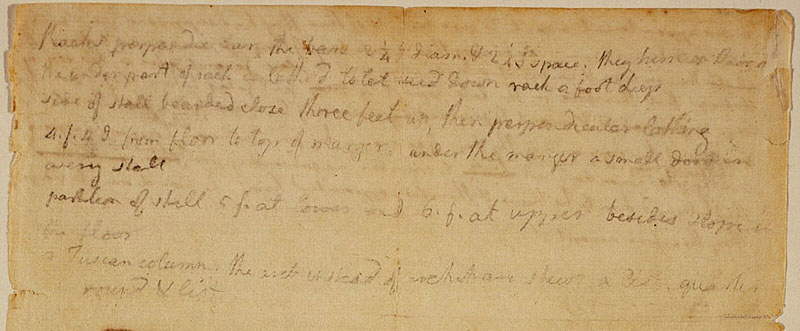 Racks perpendicular, the bars 2 1/4 I diam. & 2 1/4 I space. they have
the under part of rack is lathed to let seed down rack a foot deep
side of stall boarded close three feet up, then perpendicular lathing
4.f. 4 I from floor to top of manger. under the manger a small door in
every stall
partition of stall 5 f. at lower end 6. f. at upper besides slope in
the floor
Tuscan column. the instead of architrave shews a quarter
round & list